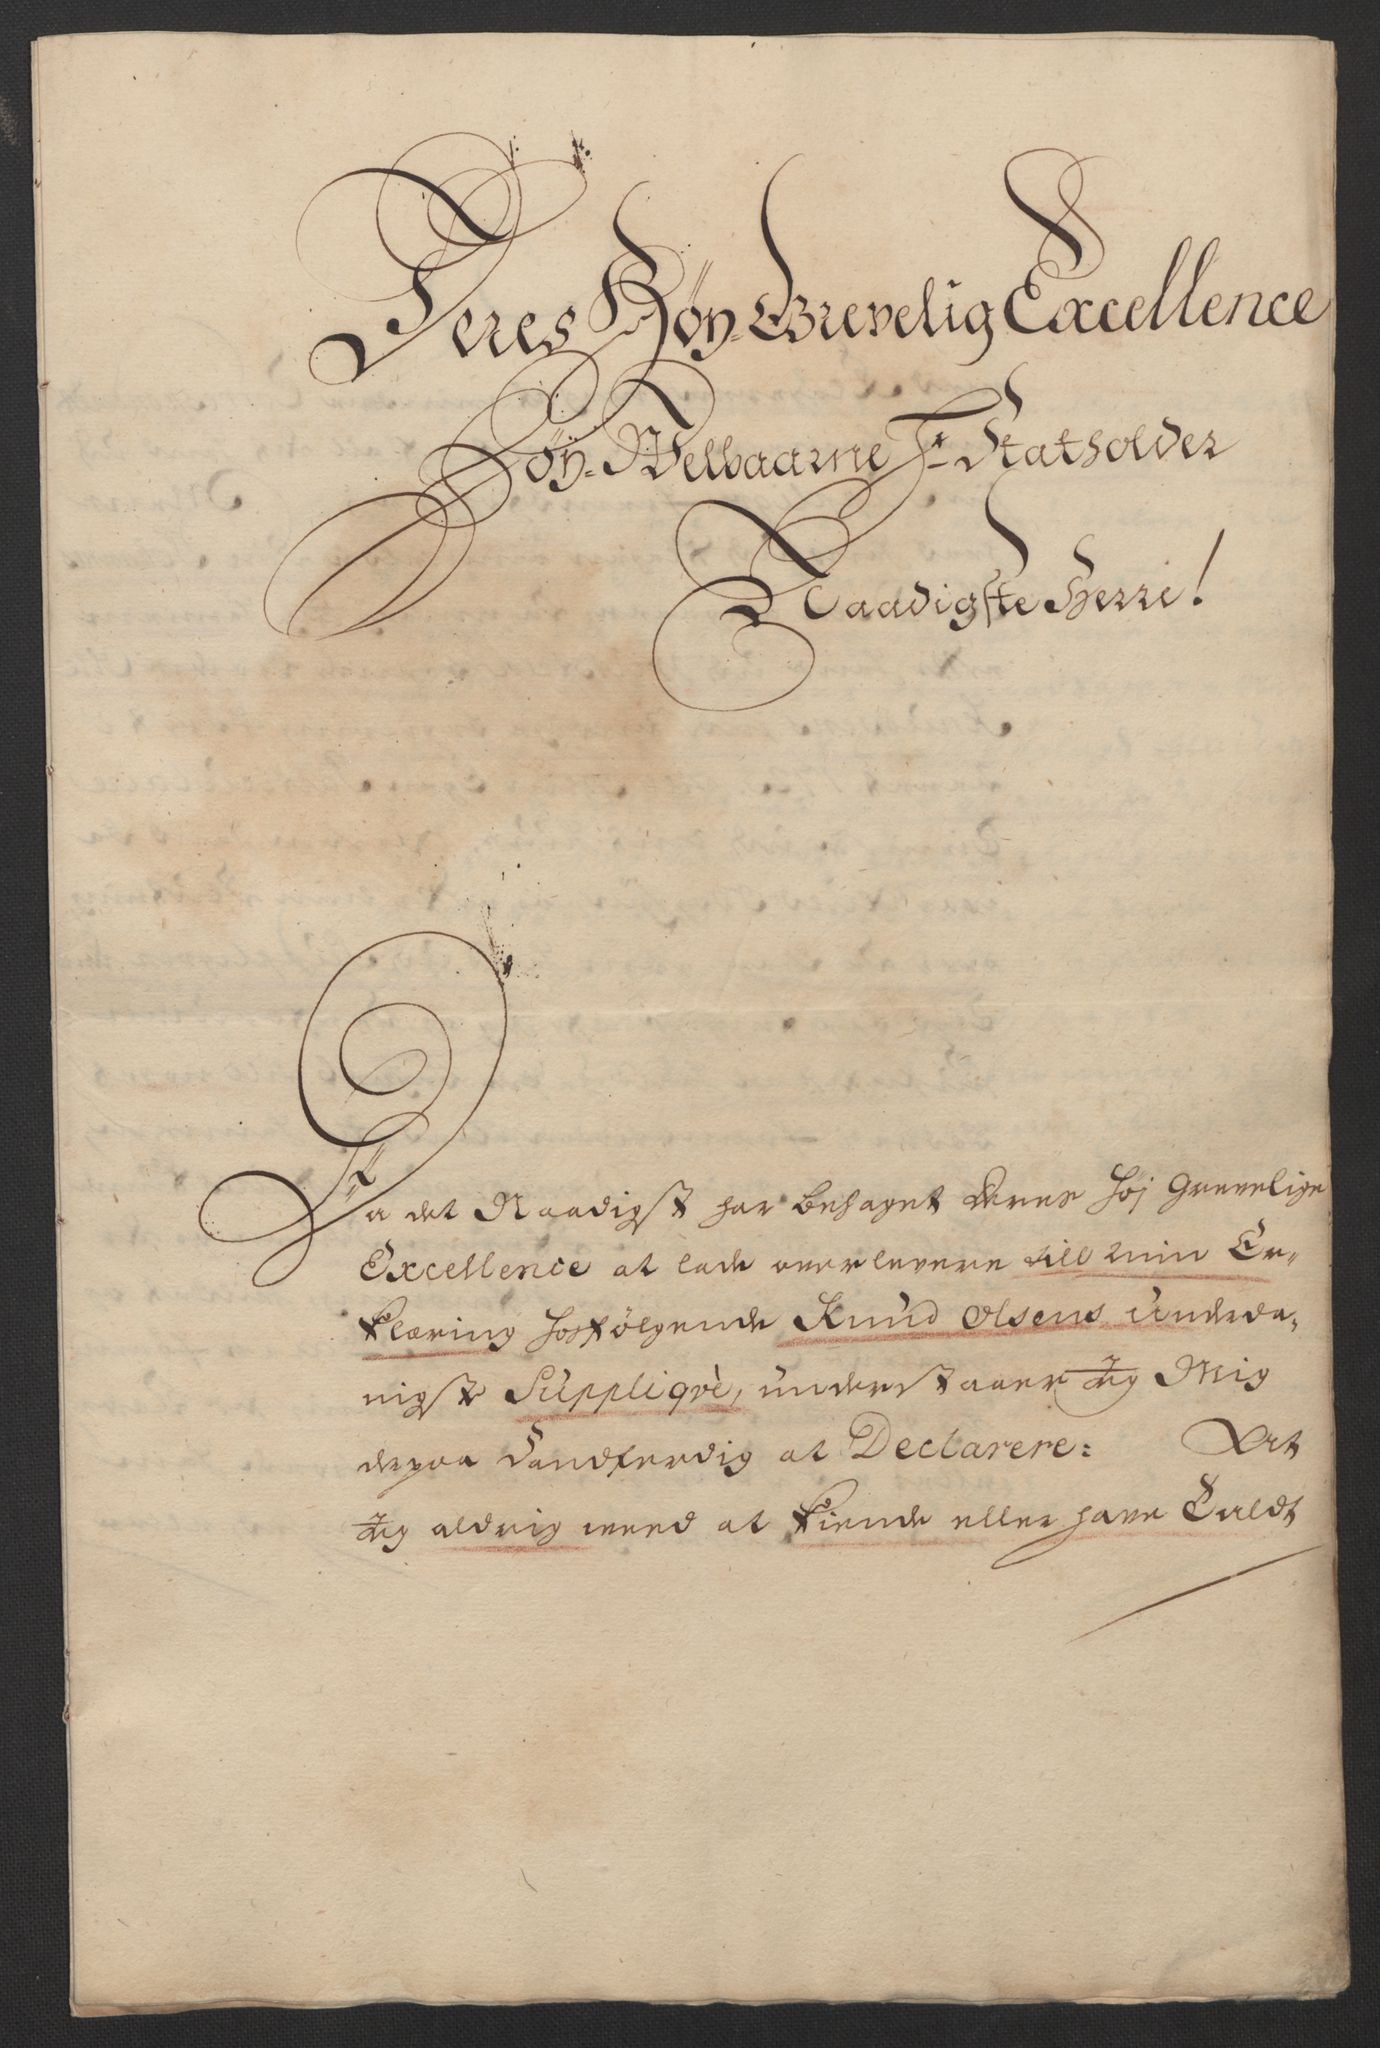 Deres Høy-Grevelig Excellence
Høy-Welbaarne Hr Statholder
Naadigste Herre!
Da det Naadigst har behaget Deres Høj Grevelige
Excellence at lade overlevere till min Er-
klæring hosfølgende Knud Olsens Underda-
nigste Suppliqvè, understaaer Jeg Mig
derpaa Sandferdig at Declarere: At
Jeg aldrig veed at kiende eller have Taldt